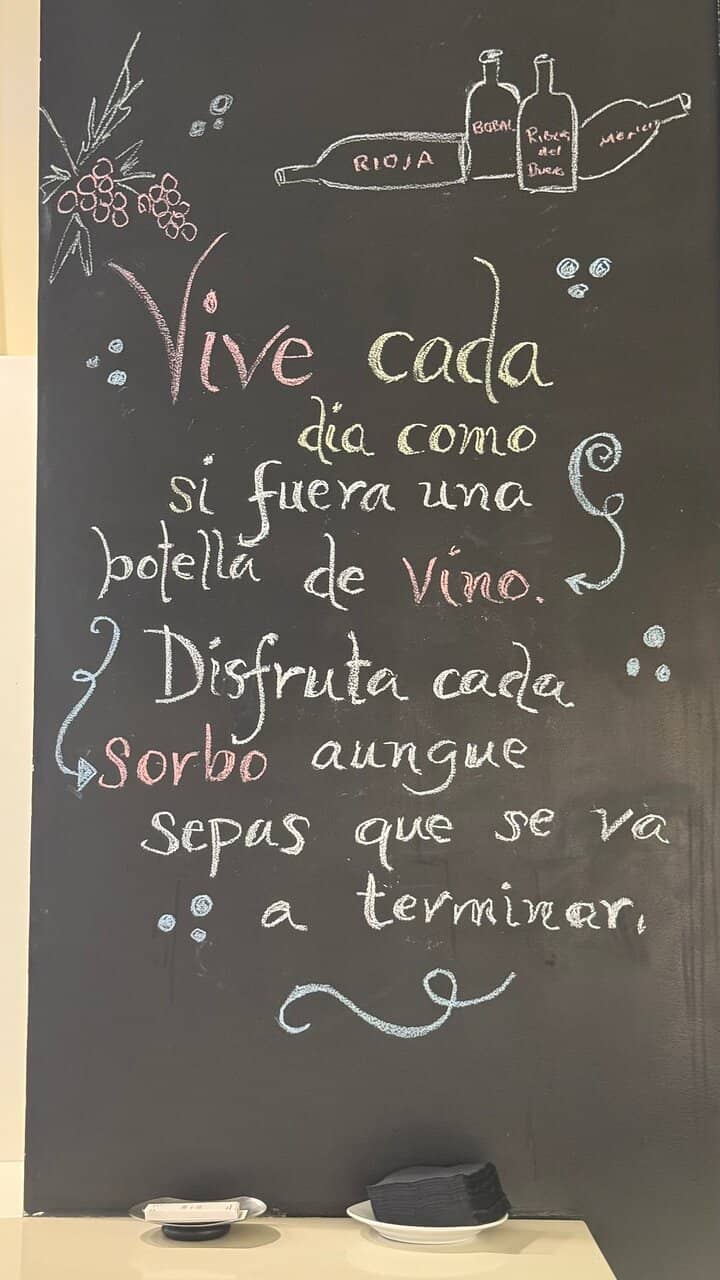 RIOJA
BOBAL
Ribera
del
Duero
Vive cada
dia como
si fuera una
botella de vino.
Disfruta cada
sorbo aunque
sepas que se va
a terminar.